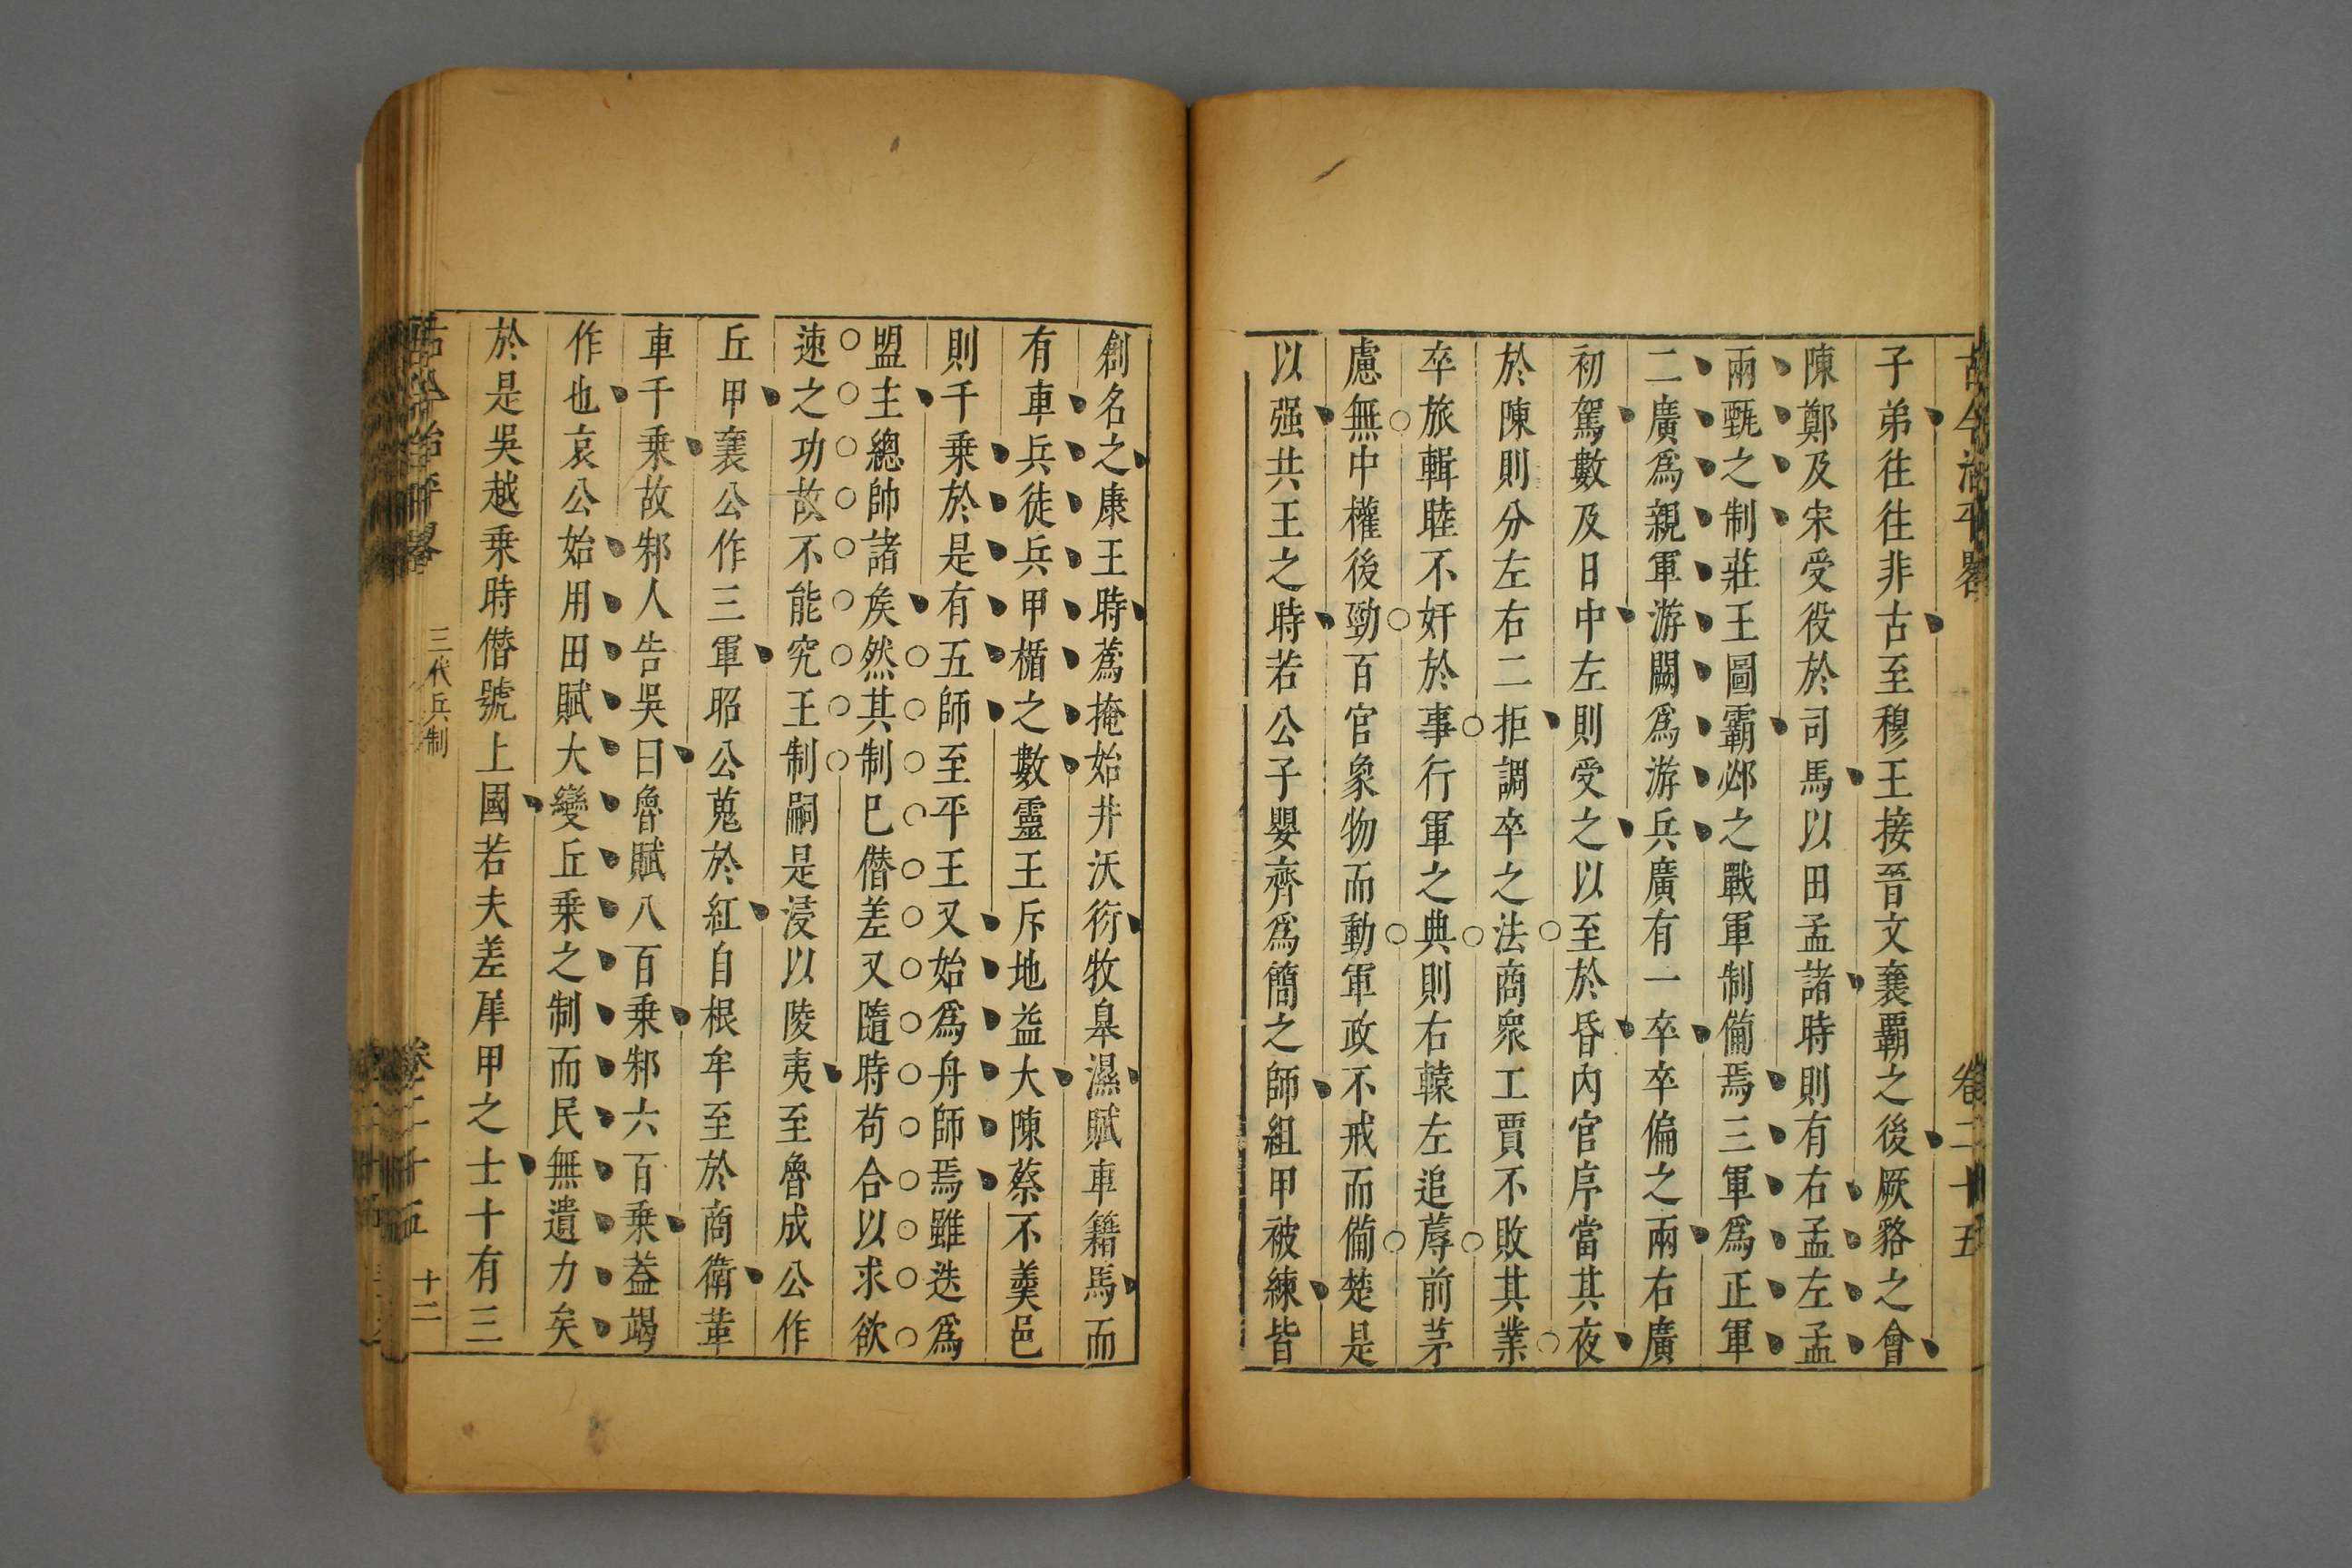 古今治平畧 卷二十五
子弟往往非古至穆王接晉文襄覇之後厥貉之會
陳鄭及宋受役於司馬以田孟諸時則有右孟左孟
兩甄之制莊王圖霸邲之戰軍制僃焉三軍爲正軍
二廣爲親軍游闕爲游兵廣有一卒卒偏之兩右廣
初駕數及日中左則受之以至於昏內官序當其夜
於陳則分左右二拒調卒之法商衆工賈不敗其業
卒旅輯睦不奸於事行軍之典則右轅左追蓐前茅
慮無中權後勁百官象物而動軍政不戒而僃楚是
以强共王之時若公子嬰齊爲簡之師組甲被練皆
創名之康王時蒍掩始井沃衍牧皋濕賦車籍馬而
有車兵徒兵甲楯之數靈王斥地益大陳蔡不羹邑
則千乗於是有五師至平王又始爲舟師焉雖迭爲
盟主總帥諸矦然其制巳僣差又隨時苟合以求欲
速之功故不能究王制嗣是浸以陵夷至魯成公作
丘甲襄公作三軍昭公蒐於紅自根牟至於商衛革
車千乗故邾人告吳曰魯賦八百乗邾六百乗葢竭
作也哀公始用田賦大變丘乗之制而民無遺力矣
於是吳越乗時僣號上國若夫差犀甲之士十有三
古今治平畧 三代兵制 卷二十五 十二